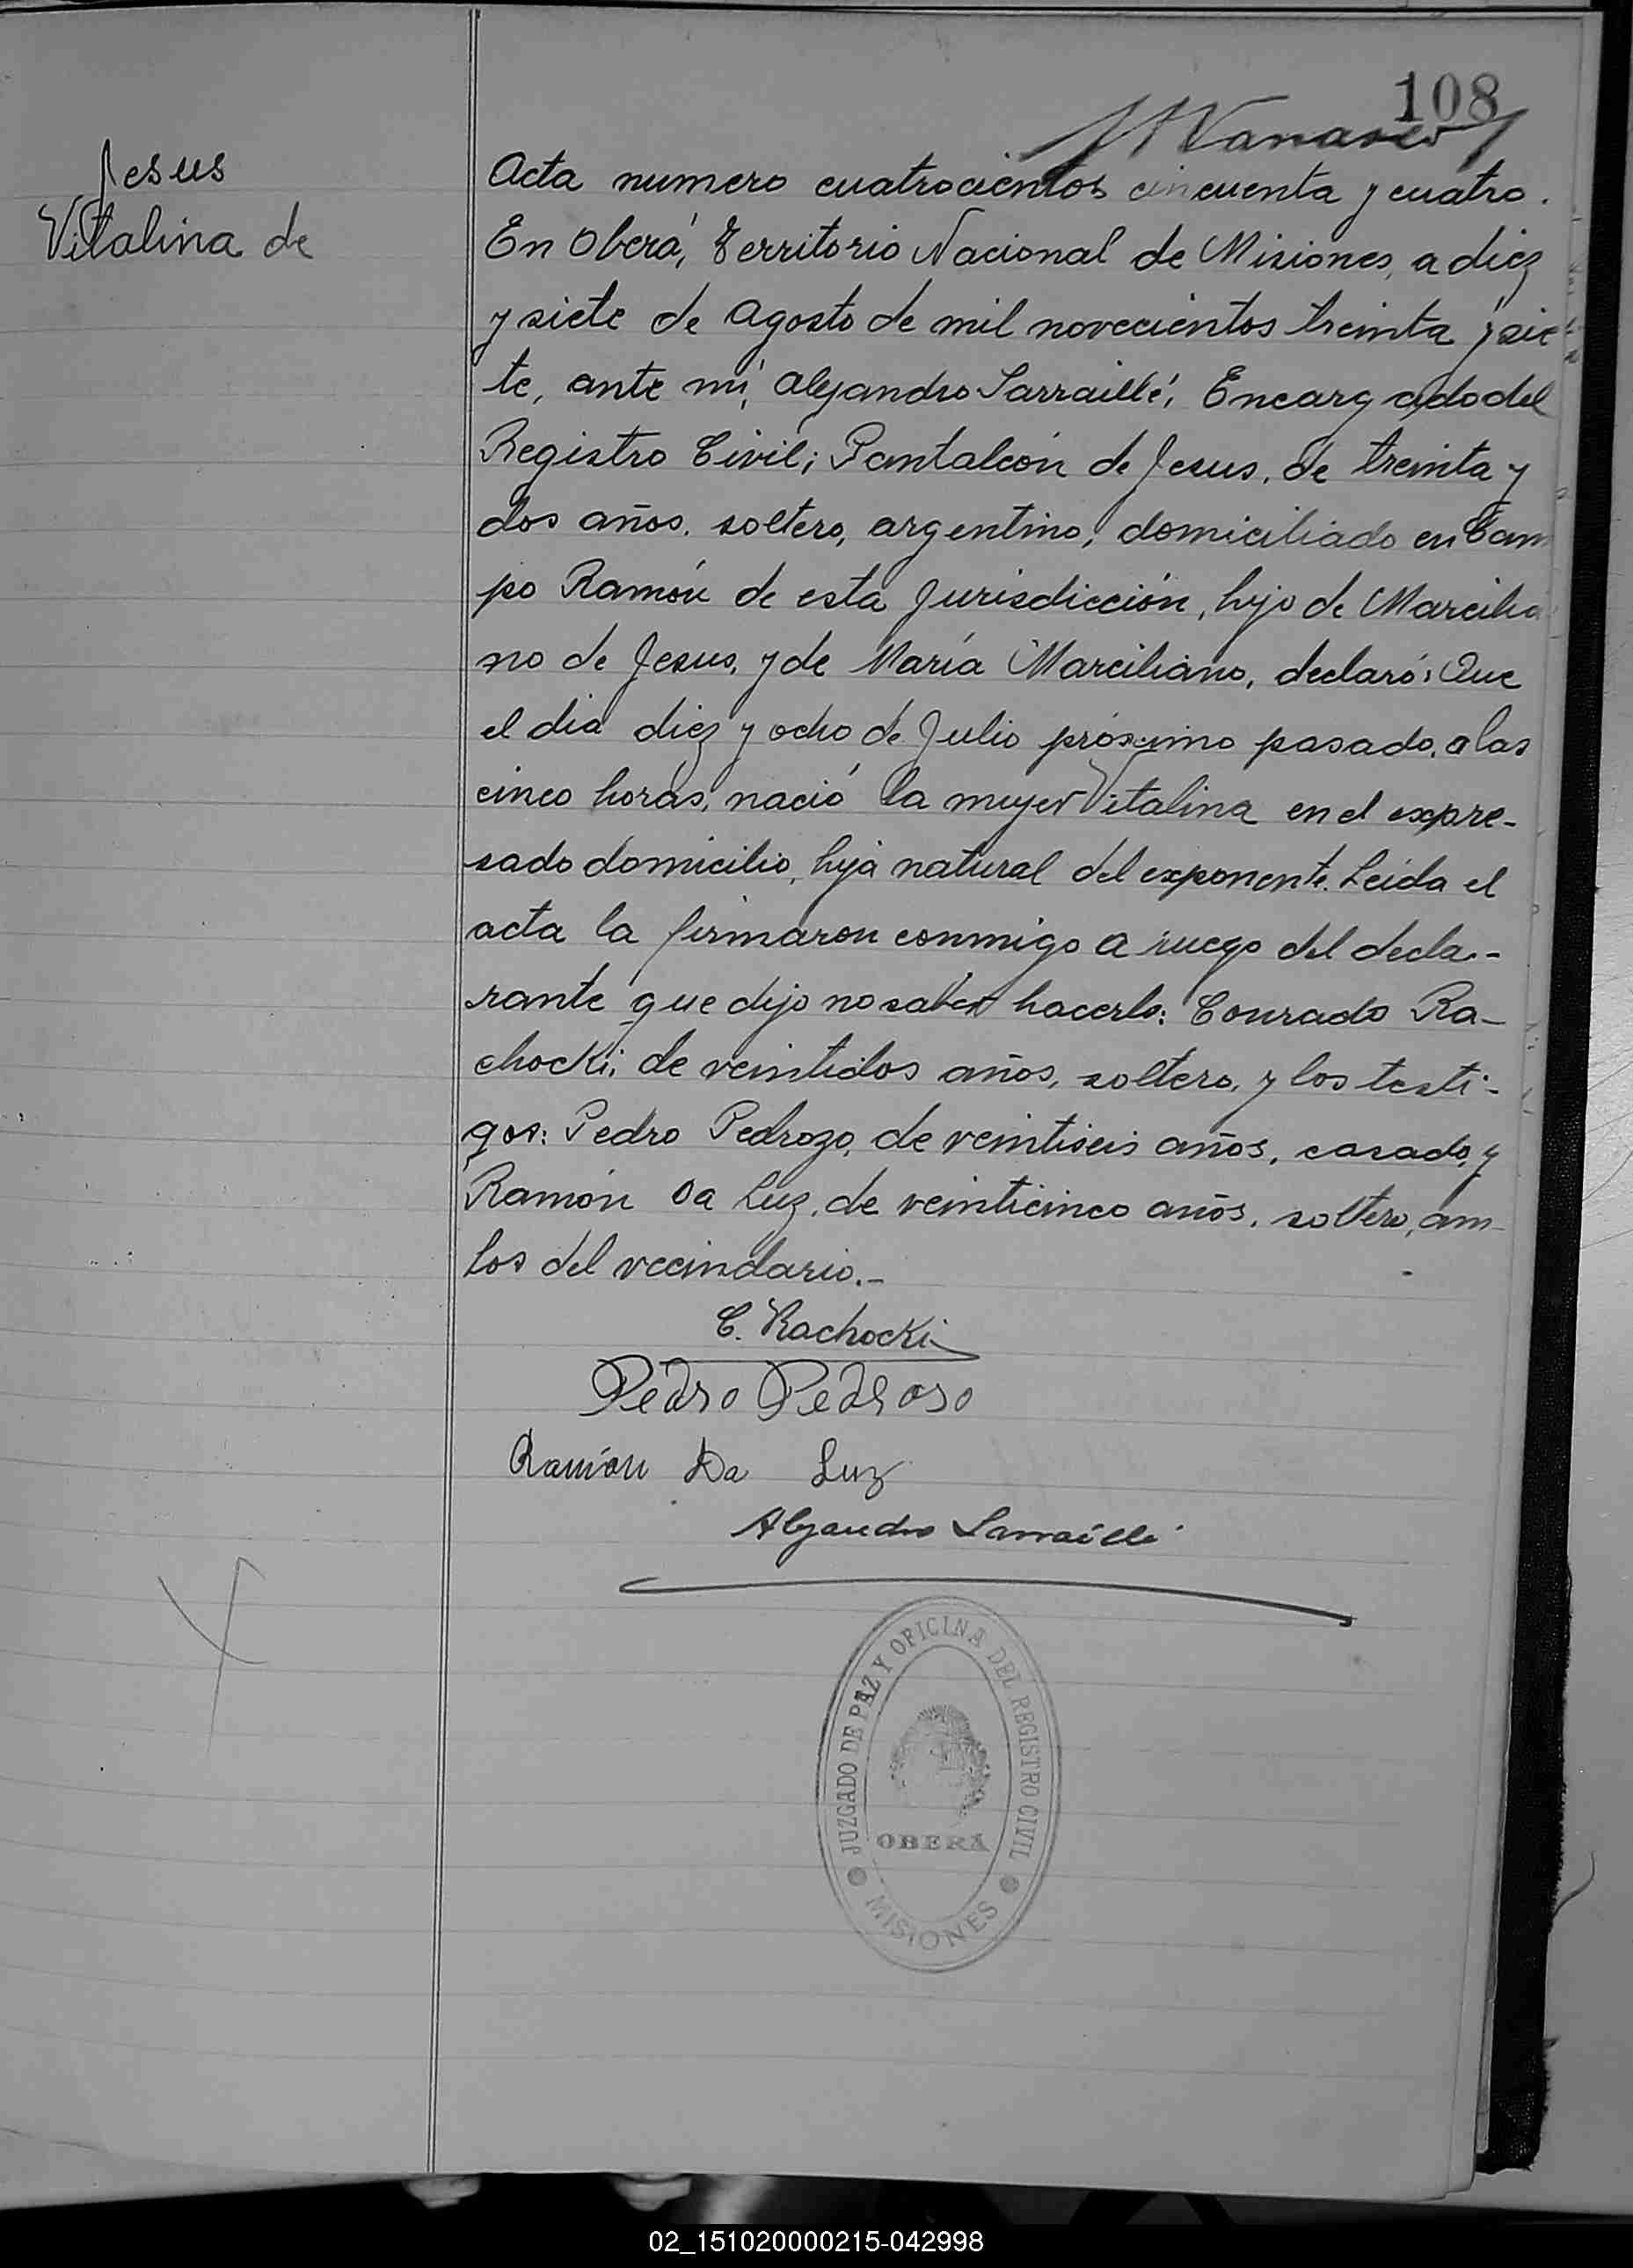 108
Jesus
Vitalina de
Acta numero cuatrocientos cincuenta y cuatro.
En Oberá, Territorio Nacional de Misiones, a diez
y siete de Agosto de mil novecientos treinta y sie
te, ante mí, Alejandro Sarraillé, Encargado del
Registro Civil; Pantaleón de Jesus, de treinta y
dos años, soltero, argentino, domiciliado en Cam
po Ramón de esta Jurisdicción, hijo de Marcilia
no de Jesus, y de María Marciliano, declaró: Que
el dia diez y ocho de Julio próximo pasado, a las
cinco horas, nació la mujer Vitalina en el expre-
sado domicilio, hija natural del exponente. Leída el
acta la firmaron conmigo a ruego del decla-
rante que dijo no saber hacerlo: Conrado Ra-
chocki, de veintidos años, soltero, y los testi-
gos: Pedro Pedrozo, de veintiseis años, casado, y
Ramón Da Luz, de veinticinco años, soltero, am-
bos del vecindario.-
C. Rachocki
Pedro Pedroso
Ramón Da Luz
Alejandro Sarraillé
JUZGADO DE PAZ Y OFICINA DEL REGISTRO CIVIL
OBERÁ
MISIONES
02_151020000215-042998